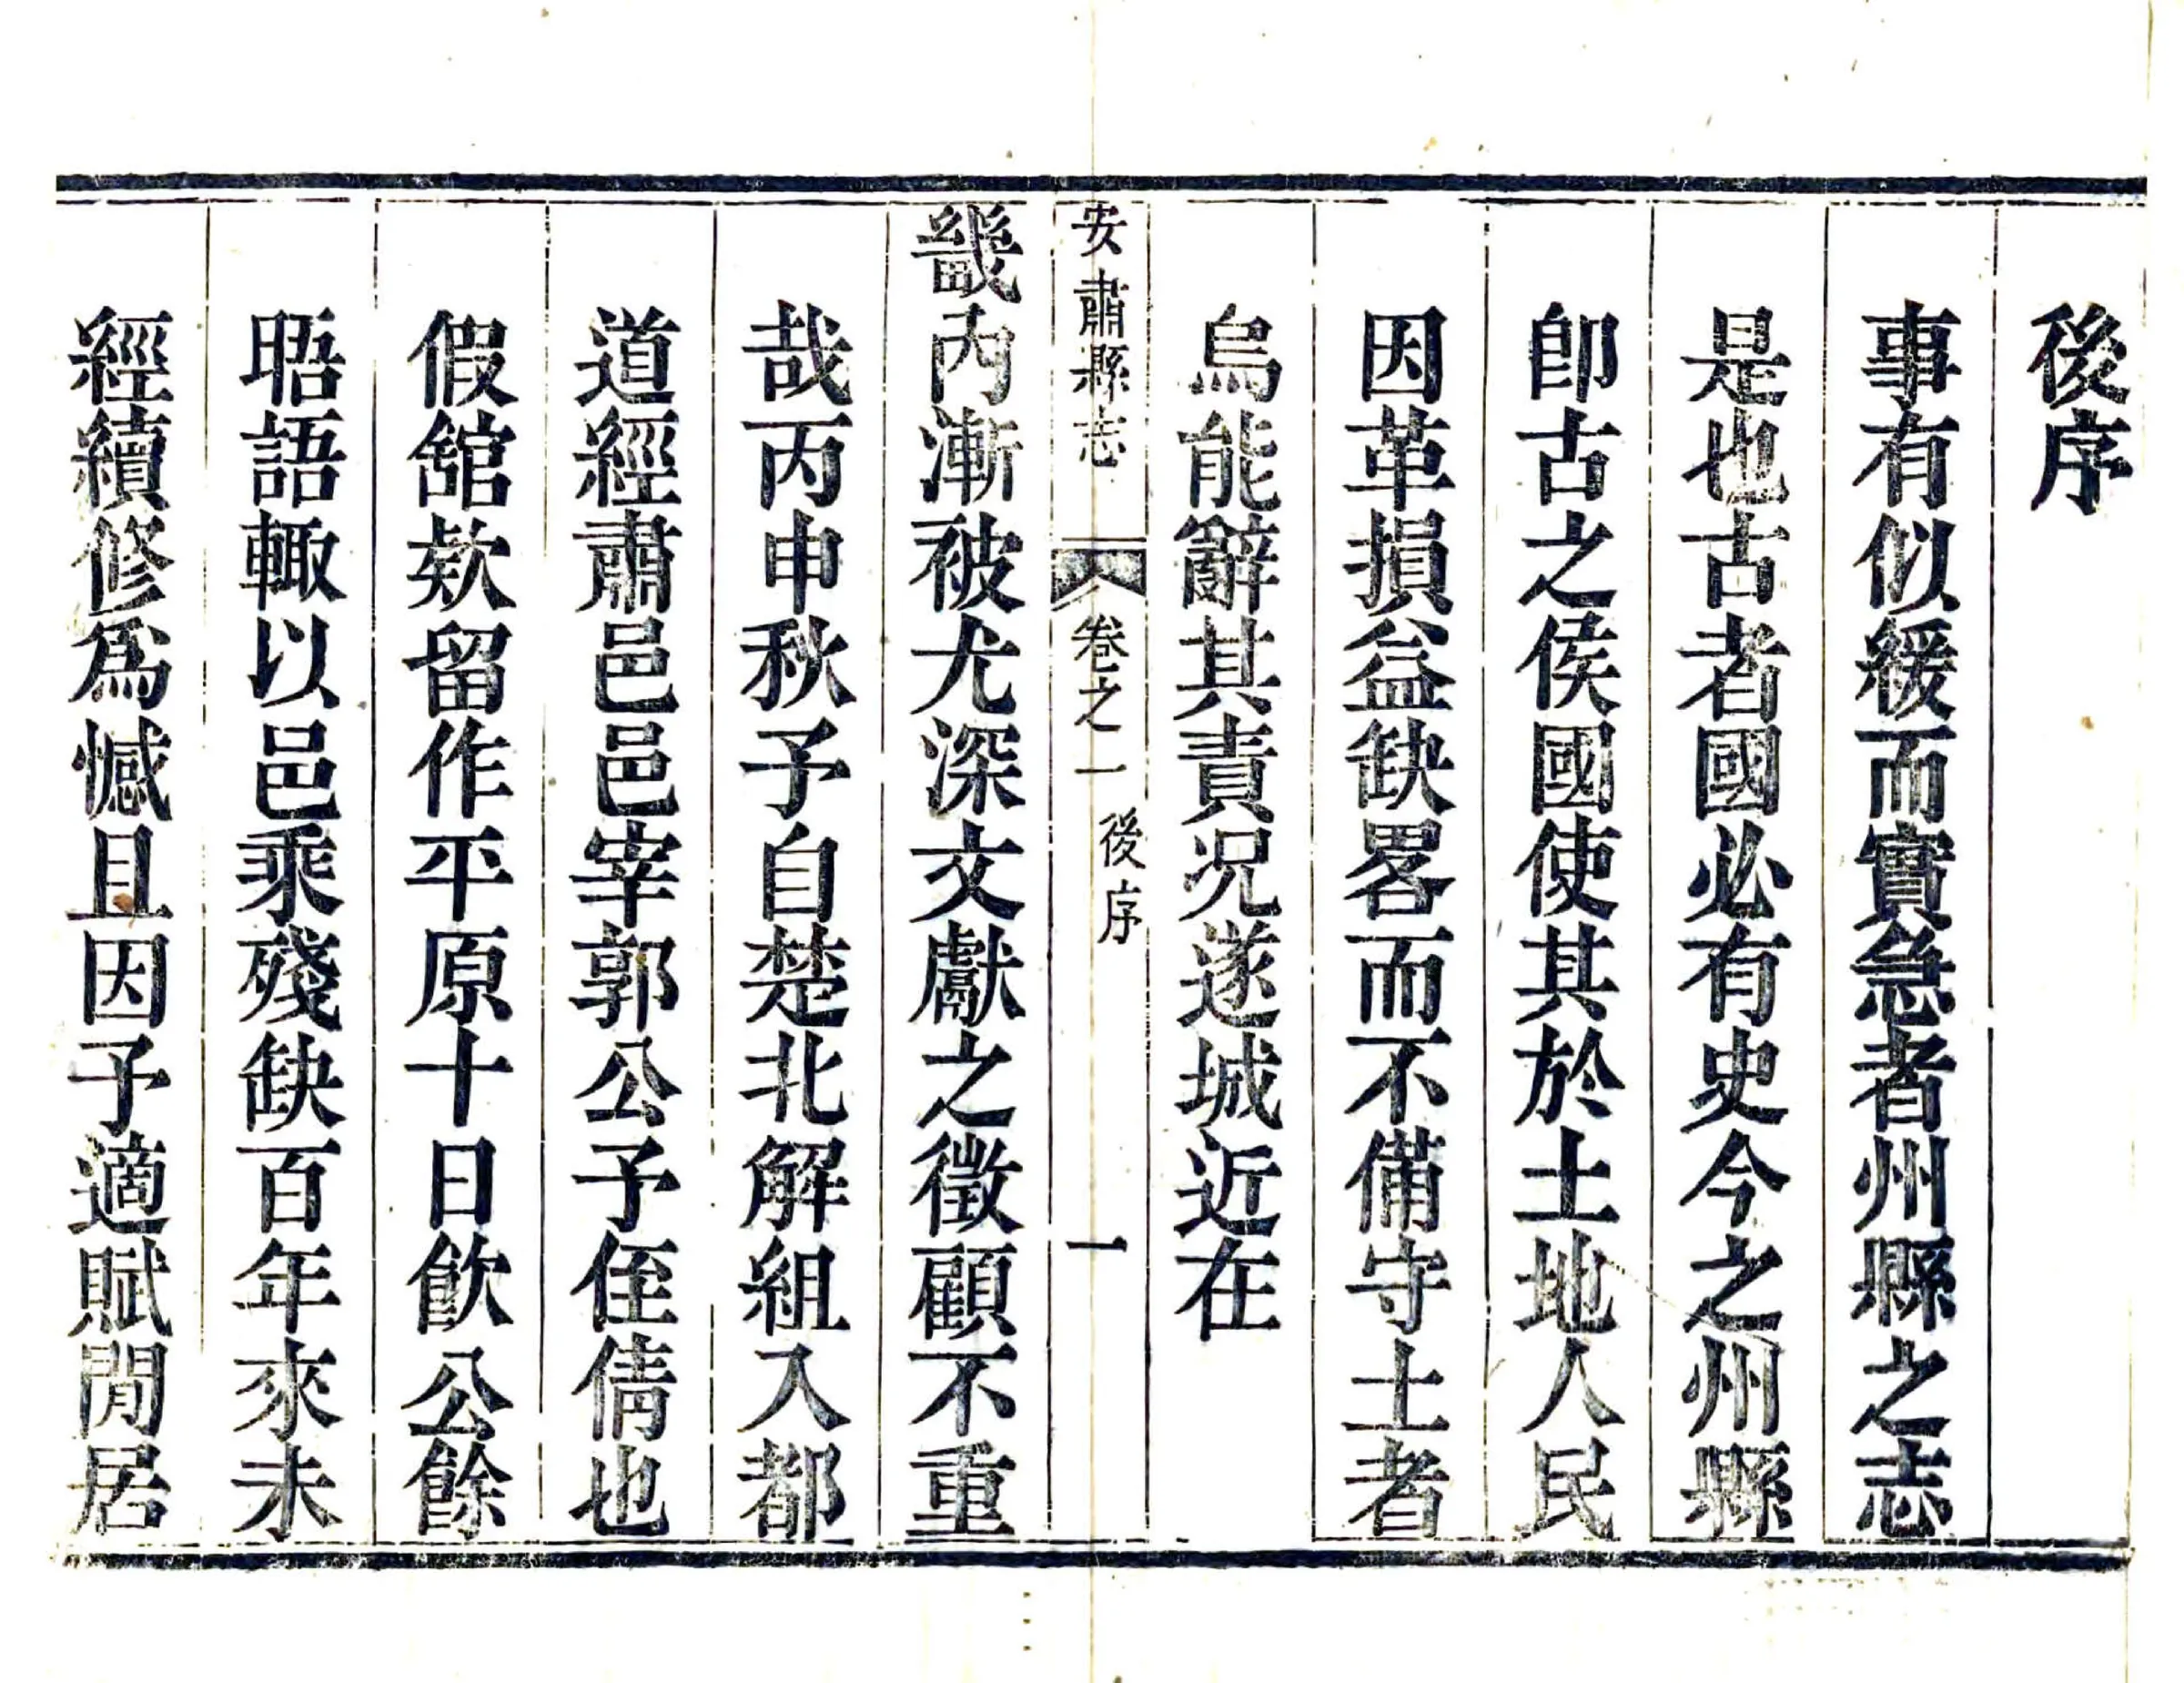 後序
事有似緩而實急者州縣之志
是也古者國必有史今之州縣
卽古之侯國使其於土地人民
因革損益缺畧而不備守土者
烏能辭其責况遂城近在
安肅縣志 卷之一 後序 一
畿內漸被尤深文獻之徵顧不重
哉丙申秋予自楚北解組入都
道經肅邑邑宰郭公予侄倩也
假舘欵留作平原十日飮公餘
晤語輙以邑乘殘缺百年來未
經續修爲憾且因予適賦閒居